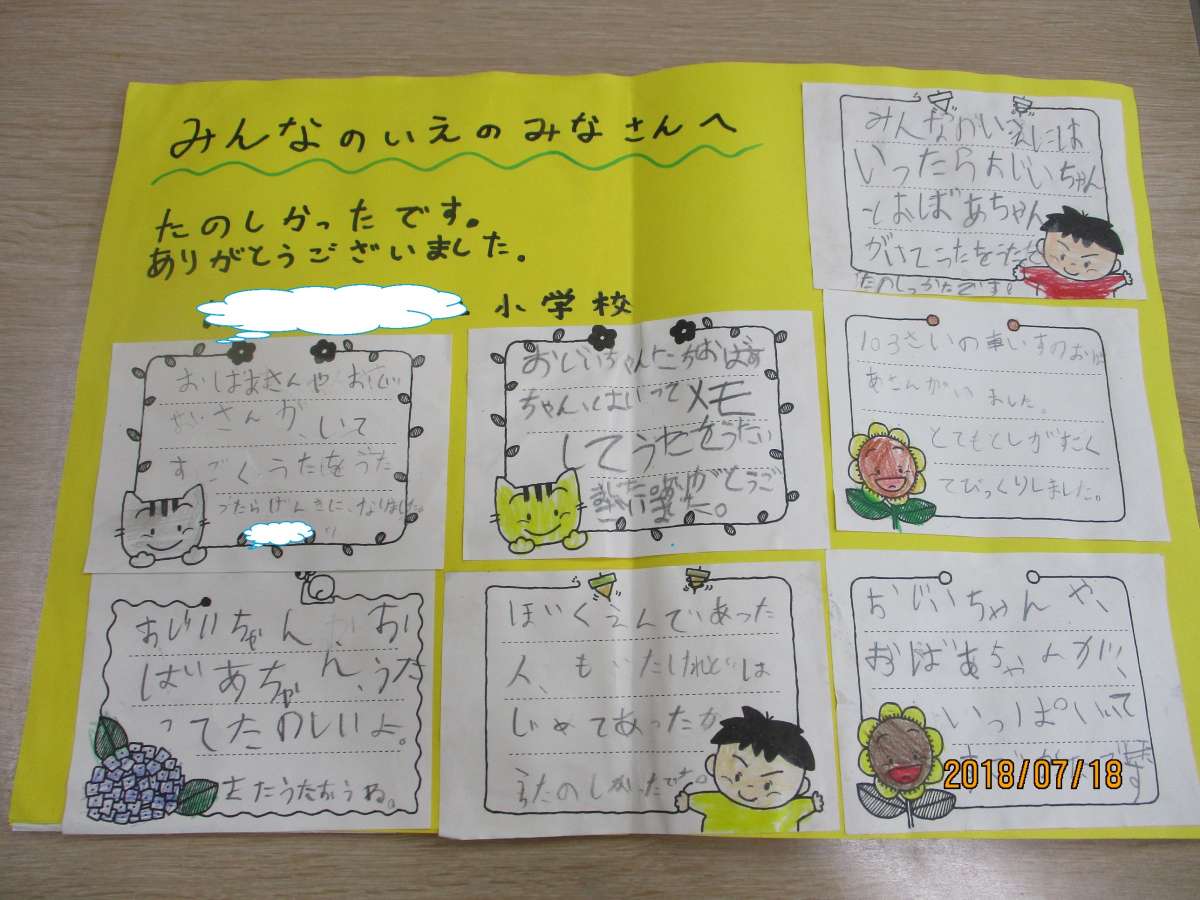 みんなのいえのみなさんへ
たのしかったです。
ありがとうございました。
小学校
みんなのいえには
いったらおじいちゃん
とおばあちゃん
がいてうたをうたて
たのしっかたです。
おばあさんや おじい
さんが、いて
すごくうたをうた
ったらげんきに、なりました。
おじいちゃんたちおばあ
ちゃん、はいって メモ
してうたをうたい
がとうご
103さいの車いすのおば
あさんがい ました。
とてもとしがすごく
てびっくりしました。
おじいちゃん お
ばあちゃん、うた
ってたのしいよ。
またうたおうね。
ほいくえんであった
人、もいたけれどは
じめてあったか
らたのしかったです。
おじいちゃんや、
おばあちゃんが、
いっぱいいて
2018/07/18